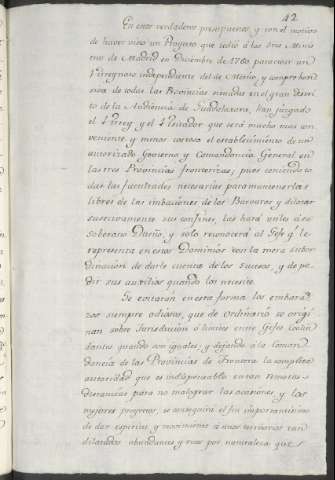 42
En estos verdaderos presupuestos, y con el motivo
de haver visto un Proyecto que volvió a los Srs. Minis
tros de Madrid en Diciembre de 1760. para crear un
Virreynato independiente del de Mexico, y comprehen
sivo de todas las Provincias situadas en el gran distri
to de la Audiencia de Guadalaxara, han juzgado
el Virrey y el Visitador que será mucho mas con
veniente, y menos costoso el establecimiento de un
autorizado Govierno y Comandancia General en
las tres Provincias fronterizas; pues concediendo
dar las facultades necesarias para mantenerlas
libres de las imbaciones de los Barbaros y dilatar
sucesivamente sus confines, las hará utiles à su
soberano Dueño, y solo reconocerá al Gefe qe. le
representa en estos Dominios con la mera subor
dinacion de darle cuenta de los sucesos, y de pe
dir sus auxilios quando los necesite.
Se evitarán en esta forma los embara
zos siempre odiosos, que de ordinario se origi
nan sobre Jurisdiccion ò limites entre Gefes
dantes quando son iguales; y dejando à la Coman
dancia de las Provincias de Frontera la completa
autoridad que es indispensable en tan remotas
distancias para no malograr las ocasiones, y los
mejores proyectos, se conseguirá el fin importantisimo
de dar espiritu y movimiento à unos territorios tan
dilatados abundantes y ricos por naturaleza que